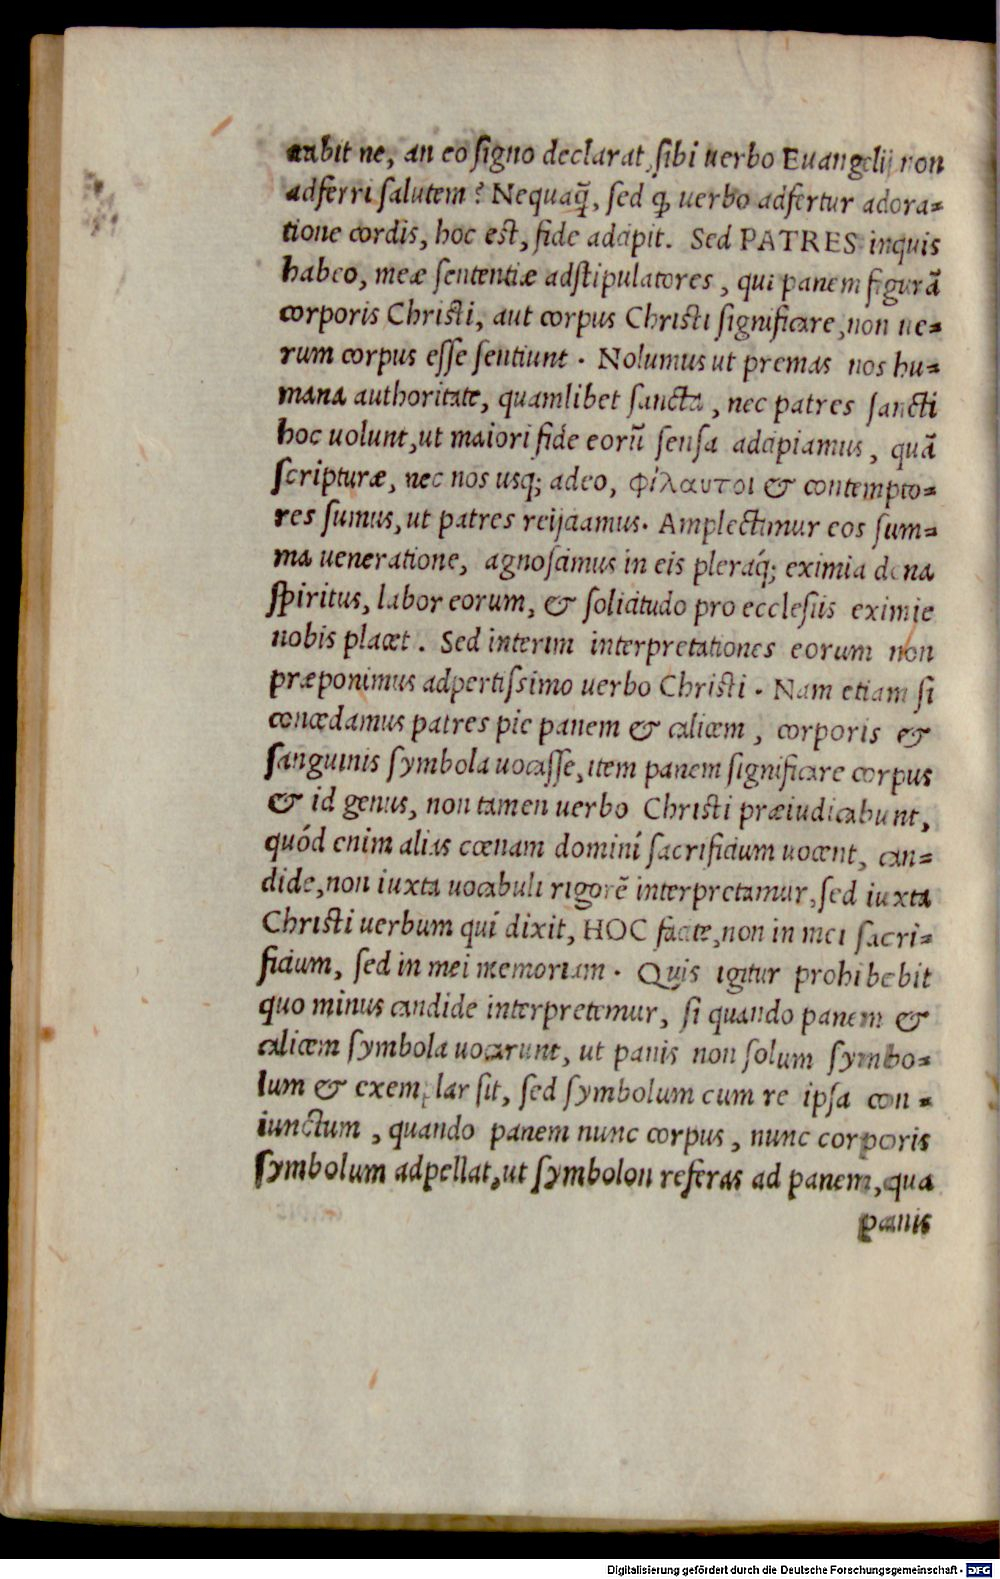 cubit ne, an eo signo declarat, sibi uerbo Euangelij non
adferri salutem? Nequaq̃, sed ꝙ uerbo adfertur adora=
tione cordis, hoc est, fide accipit. Sed PATRES inquis
habeo, meæ sententiæ adstipulatores, qui panem figurã
corporis Christi, aut corpus Christi significare, non ue=
rum corpus esse sentiunt. Nolumus ut premas nos hu=
mana authoritate, quamlibet sancta, nec patres sancti
hoc uolunt, ut maiori fide eorũ sensa accipiamus, quã
scripturæ, nec nos usq; adeo, φίλαυτοι & contempto=
res sumus, ut patres reijciamus. Amplectimur eos sum=
ma ueneratione, agnoscimus in eis pleráq; eximia dona
spiritus, labor eorum, & solicitudo pro ecclesiis eximie
nobis placet. Sed interim interpretationes eorum non
præponimus adpertissimo uerbo Christi. Nam etiam si
concedamus patres pie panem & calicem, corporis &
sanguinis symbola uocasse, item panem significare corpus
& id genus, non tamen uerbo Christi præiudicabunt,
quód enim alias cœnam dominí sacrificium uocent, can=
dide, non iuxta uocabuli rigorẽ interpretamur, sed iuxta
Christi uerbum quí dixit, HOC facite, non in mei sacri=
ficium, sed in mei memoriam. Quis igitur prohibebit
quo minus candide interpretemur, si quando panem &
calicem symbola uocarunt, ut panis non solum symbo=
lum & exemplar sit, sed symbolum cum re ipsa con=
iunctum, quando panem nunc corpus, nunc corporis
symbolum adpellat, ut symbolon referas ad panem, qua
panis
Digitalisierung gefördert durch die Deutsche Forschungsgemeinschaft - DFG